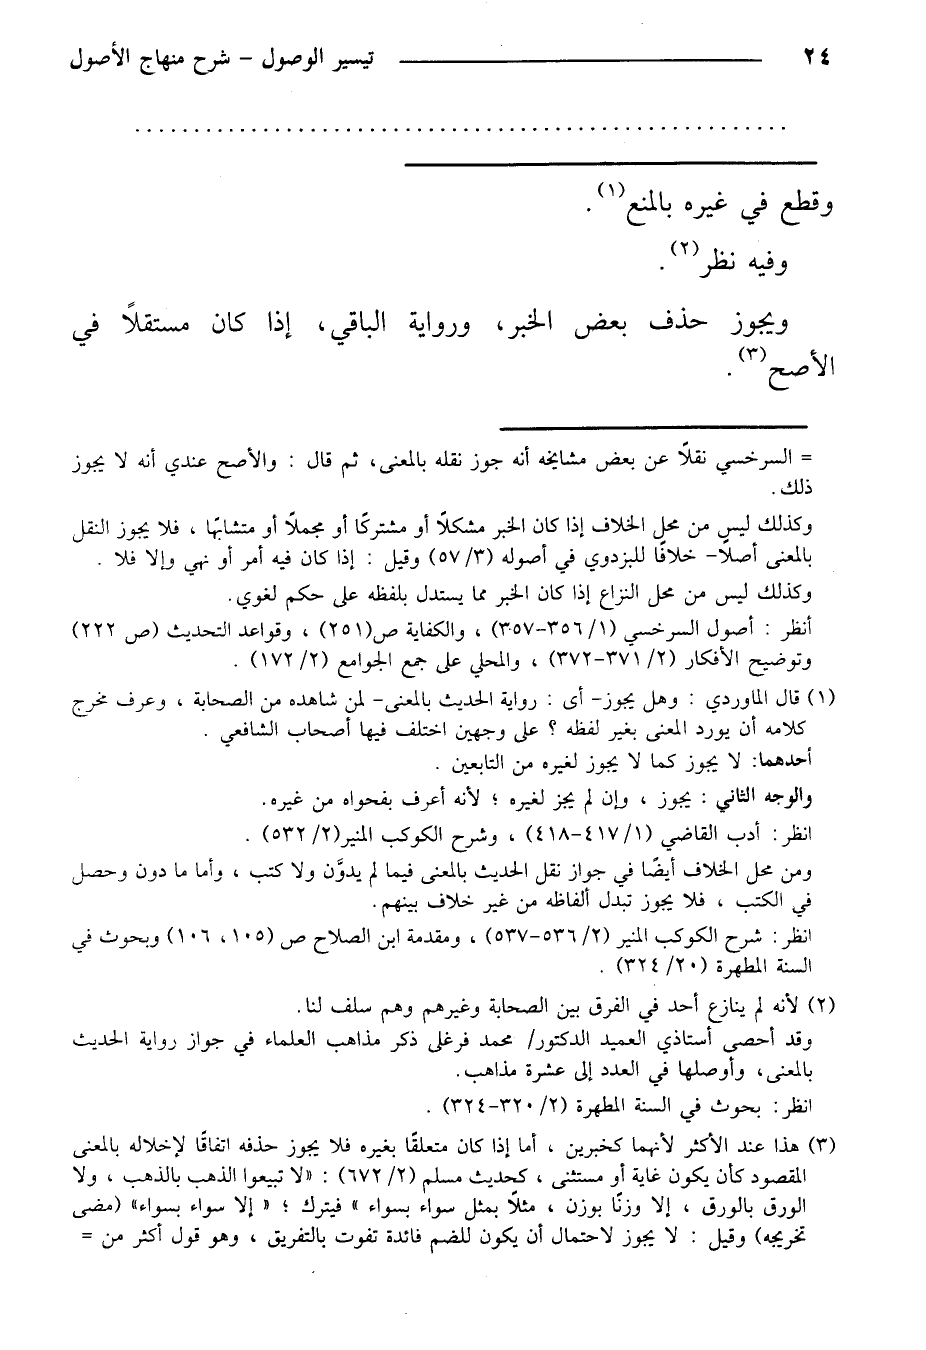 ٢٤ ــــــــــــــــــــ تيسير الوصول – شرح منهاج الأصول
......................................................
وقطع في غيره بالمنع(١).
وفيه نظر(٢).
ويجوز حذف بعض الخبر، ورواية الباقي، إذا كان مستقلاً في
الأصح(٣).
= السرخسي نقلاً عن بعض مشايخه أنه جوز نقله بالمعنى، ثم قال : والأصح عندي أنه لا يجوز
ذلك.
وكذلك ليس من محل الخلاف إذا كان الخبر مشكلاً أو مشتركًا أو مجملاً أو متشابهًا ، فلا يجوز النقل
بالمعنى أصلاً– خلافًا للبزدوي في أصوله (٣/ ٥٧) وقيل : إذا كان فيه أمر أو نهي وإلا فلا .
وكذلك ليس من محل النزاع إذا كان الخبر مما يستدل بلفظه على حكم لغوي.
أنظر : أصول السرخسي (١/ ٣٥٦–٣٥٧) ، والكفاية ص(٢٥١) ، وقواعد التحديث (ص ٢٢٢)
وتوضيح الأفكار (٢/ ٣٧١–٣٧٢) ، والمحلي على جمع الجوامع (٢/ ١٧٢) .
(١) قال الماوردي : وهل يجوز– أى : رواية الحديث بالمعنى– لمن شاهده من الصحابة ، وعرف مخرج
كلامه أن يورد المعنى بغير لفظه ؟ على وجهين اختلف فيها أصحاب الشافعي .
أحدهما: لا يجوز كما لا يجوز لغيره من التابعين .
والوجه الثاني : يجوز ، وإن لم يجز لغيره ؛ لأنه أعرف بفحواه من غيره.
انظر : أدب القاضي (١/ ٤١٧–٤١٨) ، وشرح الكوكب المنير(٢/ ٥٣٢) .
ومن محل الخلاف أيضًا في جواز نقل الحديث بالمعنى فيما لم يدوَّن ولا كتب ، وأما ما دون وحصل
في الكتب ، فلا يجوز تبدل ألفاظه من غير خلاف بينهم.
انظر : شرح الكوكب المنير (٢/ ٥٣٦–٥٣٧) ، ومقدمة ابن الصلاح ص (١٠٥، ١٠٦) وبحوث في
السنة المطهرة (٢٠/ ٣٢٤) .
(٢) لأنه لم ينازع أحد في الفرق بين الصحابة وغيرهم وهم سلف لنا.
وقد أحصى أستاذي العميد الدكتور/ محمد فرغلى ذكر مذاهب العلماء في جواز رواية الحديث
بالمعنى، وأوصلها في العدد إلى عشرة مذاهب.
انظر : بحوث في السنة المطهرة (٢/ ٣٢٠–٣٢٤) .
(٣) هذا عند الأكثر لأنهما كخبرين ، أما إذا كان متعلقًا بغيره فلا يجوز حذفه اتفاقًا لإخلاله بالمعنى
المقصود كأن يكون غاية أو مستثنى ، كحديث مسلم (٢/ ٦٧٢) : «لا تبيعوا الذهب بالذهب ، ولا
الورق بالورق ، إلا وزنًا بوزن ، مثلاً بمثل سواء بسواء » فيترك ؛ « إلا سواء بسواء» (مضى
تخريجه) وقيل : لا يجوز لاحتمال أن يكون للضم فائدة تفوت بالتفريق ، وهو قول أكثر من =